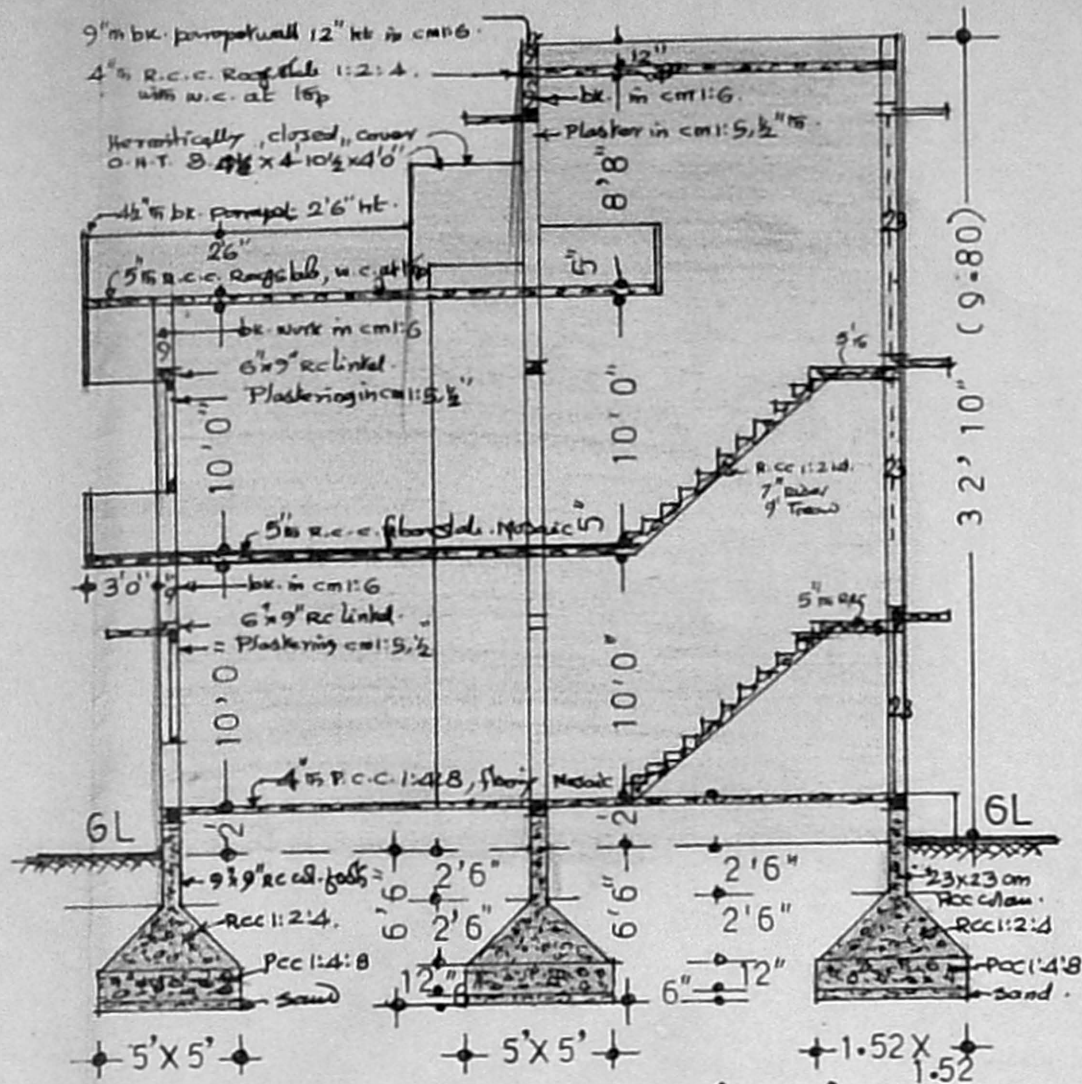 9"th bk. parapet wall 12" ht in cm1:6.
4"th R.C.C. Roof slab 1:2:4.
with w.c. at top
12"
bk. in cm1:6.
Plaster in cm1:5, ½" th.
Hermitically closed, cover
O.H.T. 8'4½ x 4'-10½ x 4'0"
4½"th bk. parapet 2'6" ht.
8'8"
23
26"
5"th R.C.C. Roof slab, w.c. at top
5"
(9.80)
bk. work in cm1:6
9
6"x9" RC lintel.
Plastering in cm1:5, ½"
10'0"
10'0"
R.CC 1:2:4.
7" Riser
9" Tread
23
32'10"
5"th R.C.C. floor slab. Mosaic
5"
3'0"
9"
bk. in cm1:6
6"x9" RC lintel.
Plastering cm1:5, ½
5"th RCC
10'0
10'0"
23
4"th P.C.C. 1:4:8, floor Mosaic
6L
6L
2'
2'
9"x9" RC col.
6'6
2'6"
6'6"
2'6"
23x23cm
RCC colum.
RCC 1:2:4.
2'6"
2'6"
RCC 1:2:4
PCC 1:4:8
12"
6"
6"
12"
PCC 1:4:8
sand
sand.
5'X5'
5'X5'
1.52 X
1.52